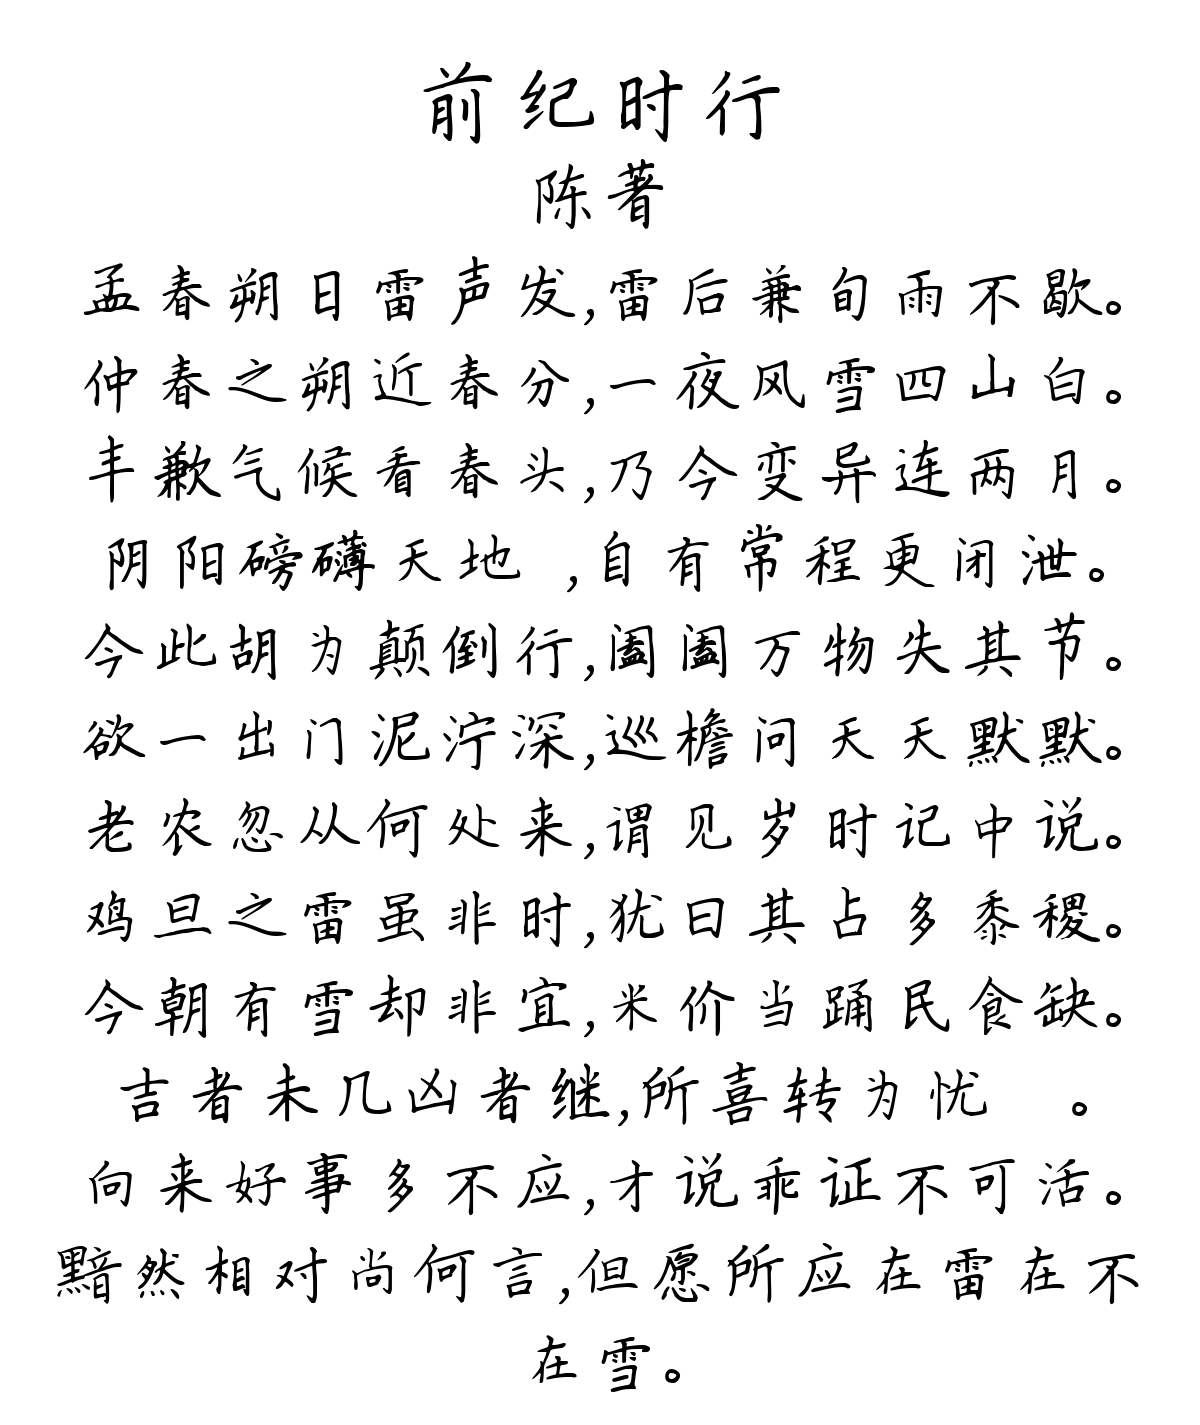 前纪时行
陈著
孟春朔日雷声发,雷后兼旬雨不歇。
仲春之朔近春分,一夜风雪四山白。
丰歉气候看春头,乃今变异连两月。
阴阳磅礴天地 ,自有常程更闭泄。
今此胡为颠倒行,阖阖万物失其节。
欲一出门泥泞深,巡檐问天天默默。
老农忽从何处来,谓见岁时记中说。
鸡旦之雷虽非时,犹曰其占多黍稷。
今朝有雪却非宜,米价当踊民食缺。
吉者未几凶者继,所喜转为忧 。
向来好事多不应,才说乖证不可活。
黯然相对尚何言,但愿所应在雷在不
在雪。